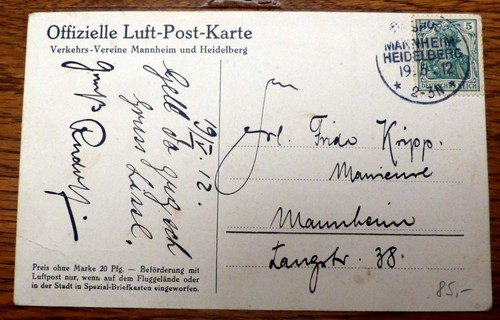 Offizielle Luft-Post-Karte
Verkehrs-Vereine Mannheim und Heidelberg
MANNHEIM-
HEIDELBERG
19. 5. 12
* 2-3N *
5
DEUTSCHES REICH
Gruß
Rudolf
19/V. 12.
Gruss
Frl. Frida Kripp.
Manicure
Mannheim
Langstr. 38.
Preis ohne Marke 20 Pfg. — Beförderung mit
Luftpost nur, wenn auf dem Fluggelände oder
in der Stadt in Spezial-Briefkasten eingeworfen.
85,-